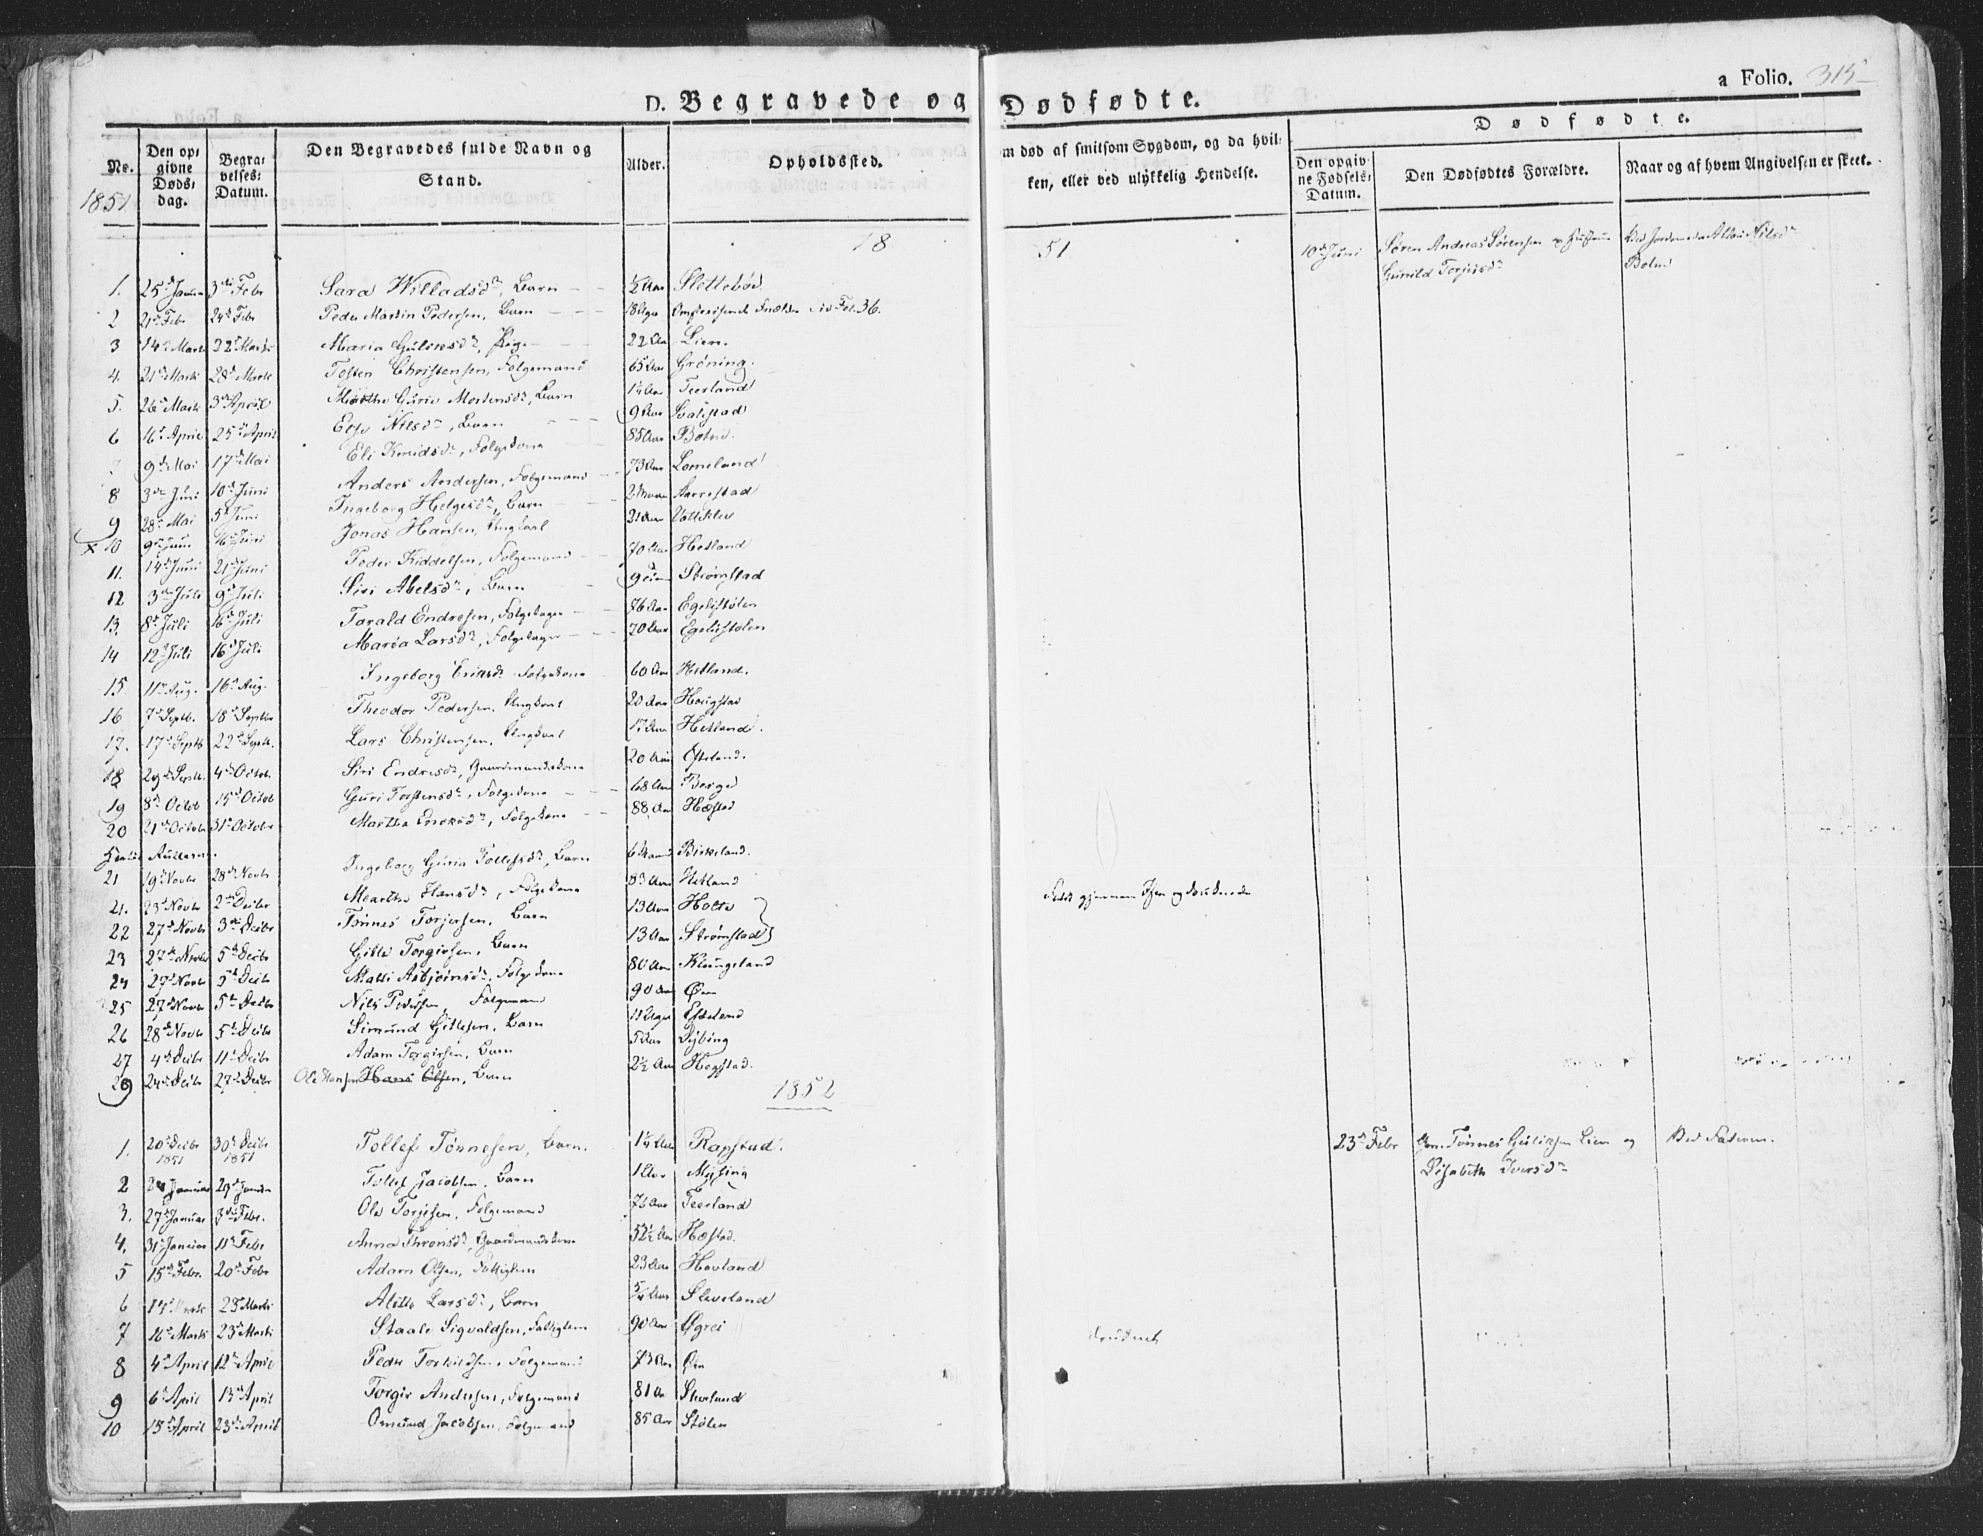 D. Begravede og Dødfødte.
a Folio. 315
No.
Den opgivne Dødsdag.
Begravelses-Datum.
Den Begravedes fulde Navn og Stand.
Alder.
Opholdssted.
m død af smitsom Sygdom, og da hvilken, eller ved ulykkelig Hendelse.
Dødfødte.
Den opgivne Fødsels-Datum.
Den Dødfødtes Forældre.
Naar og af hvem Angivelsen er skeet.
1851
18 51
10de Juni Søren Andreas Sørensen og Hustrue
Gunild Torjusdr
1. 25de Januar 3die Febr Sara Willadsdr, Barn ½ Aar Slettebøe
2 21de Febr 24de Febr Peder Martin Pedersen, Barn 18 Uger Fol. 36.
3 14de Marts 22de Marts Maria Guliksdr, Pige 22 Aar Lien
4. 21de Marts 28de Marts Tosten Christensen, Folgemand 65 Aar Grøning
5. 26de Marts 3die April Marthe Gurie Mortensdr, Barn 1¼ Aar Teerland
6 16de April 25de April Else Nilsdr, Barn 9 Aar Svalestad
9de Mai 17de Mai Eli Knudsdr, Folgekone 85 Aar
8 3die Juni 10de Juni Anders Andersen, Folgemand 73 Aar Lomeland
9 28de Mai 5te Juni Ingeborg Helgesdr, Barn Aarrestad
x 10 9de Juni 16de Juni Jonas Hansen, Ungkarl 21 Aar
11. 14de Juni 21de Juni Peder Kiddelsen, Folgemand 70 Aar Hetland
12 3die Juli 9de Juli Siri Abelsdr, Barn Strømstad
13. 8de Juli 16de Juli Tarald Endresen, Folgetager 76 Aar Egelistølen
14 12te Juli 16de Juli Maroa Larsdr, Folgetager 70 Aar Egelistølen
15 11te Aug. 16de Aug. Ingeborg Eriksdr Folgekone 60 Aar Hetland.
16 7de Septb. 18de Septbr Theodor Pedersen, Ungkarl 20 Aar Hougstad
17. 17de Septb 22de Septb. Lars Christensen, Ungkarl 17 Aar Hetland.
18 29de Septb. 4de Octob. Siri Endresdr, Gaardmandskone 20 Aar Østeland.
19 8de Octob 15de Octob Guri Torstensdr, Folgekone 68 Aar Berge
20 21de Octobr 31te Octobr Martha Endresdr, Folgekone 88 Aar Hæstad
21 19de Novbr 28de Novbr Ingeborg Guria Tollefsdr, Barn Birkeland.
21. 23de Novbr 2den Decbr Martha Hansdr, Folgekone 83 Aar Hetland
22 27de Novbr 3die Decbr Tønnes Torjersen, Barn 13 Aar Holte
Faldt gjennem Isen og druknede
23 27de Novbr 5te Decbr Gitle Torgiersen, Barn 13 Aar Strømstad
24 27de Novbr 5te Decbr Malli Asbjørnsdr, Folgekone 80 Aar Klungeland
25 27de Novbr 5te Decbr Nils Pedersen Folgemand 90 Aar Øen
26 28de Novbr 5te Decbr Simund Gitlesen, Barn 11 Uger
27 4de Decbr 11te Decbr Adam Torgiersen, Barn 5 Aar Dybing
24de Decbr 27de Decbr Ole Hansen Hans Olsen, Barn 2½ Aar Hegstad.
1852
1. 20de Decbr 1851 30te Decbr 1851 Tollef Tønnesen, Barn. 1¼ Aar Rapstad.
23de Febr Tønnes Guliksen Lien og Ved Faderen.
Elisabeth Iversdr
2 Januar 29de Januar Tollef Jacobsen, Barn 1 Aar Mysing
3. 27de Januar 3die Febr. Ole Torjesen, Folgemand 76 Aar Teerland
4. 31te Januar 11te Febr Anna Thronsdr, Gaardmandskone 52½ Aar Hæstad.
5 15de Febr. 20de Febr Adam Olsen, Fattiglem 23 Aar Hovland
6 Marts 23de Marts Alette Larsdr, Barn Sleveland
7 16de Marts 23de Marts Staale Sigvaldsen, Fattiglem 90 Aar Øgrei
druknet
8 4de April 12te April Peder Torkildsen, Folgemand 73 Aar Øen
9 6te April 13de April Torgir Andersen, Folgemand 81 Aar
10 15de April 23de April Omund Jacobsen, Folgemand 85 Aar Stølen